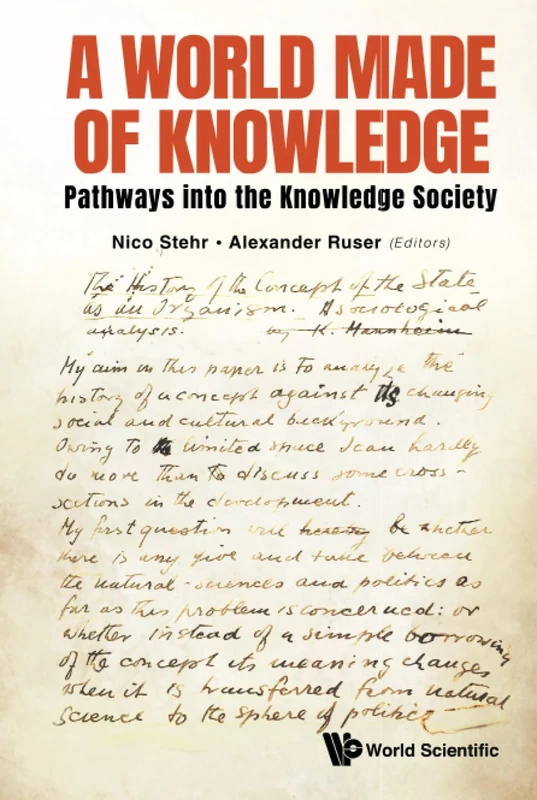 A WORLD MADE
OF KNOWLEDGE
Pathways into the Knowledge Society
Nico Stehr • Alexander Ruser (Editors)
The History of the Concept of the State
as an Organism. A sociological
analysis. by K. Mannheim
My aim in this paper is to analyze the
history of a concept against its changing
social and cultural background.
Owing to limited space I can hardly
do more than to discuss some cross-
sections in the development.
My first question will be whether
there is any give and take between
the natural-sciences and politics as
far as this problem is concerned: or
whether instead of a simple borrowing
of the concept its meaning changes
when it is transferred from natural
science to the sphere of politics
World Scientific